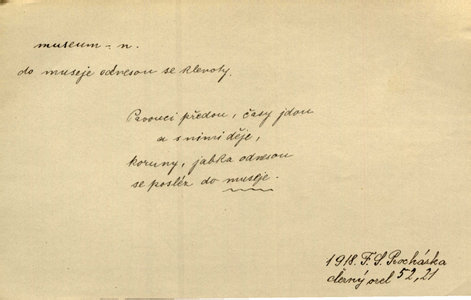 museum - n.
do museje odnesou se klenoty.
Pavouci předou, časy jdou
a s nimi děje,
koruny, jablka odnesou
se posléz do museje.
1918. F. S. Procházka
černý orel 52, 21